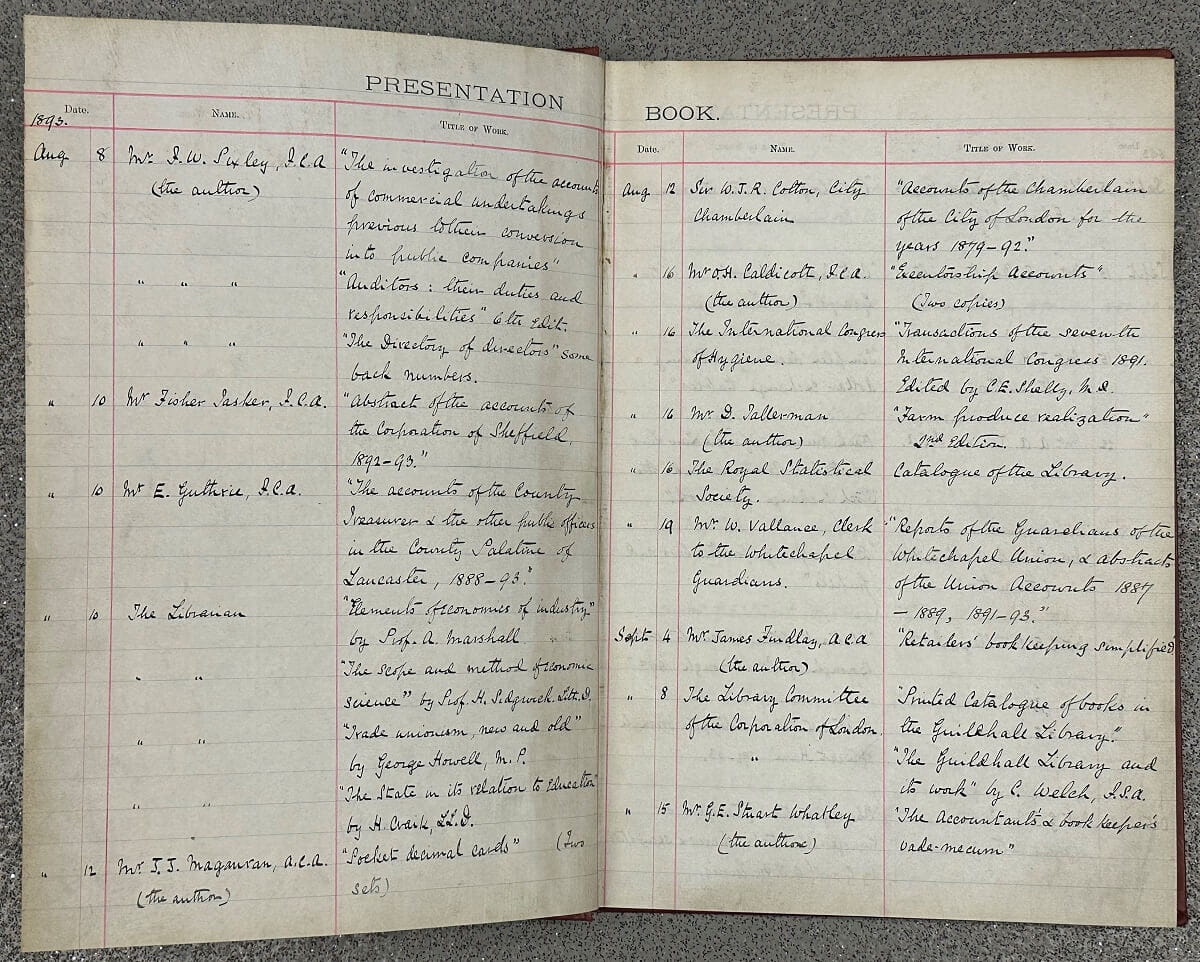 PRESENTATION
Date. NAME. TITLE OF WORK.
1893.
Aug 8 Mr. F. W. Pixley, F.C.A "The investigation of the accounts
(the author) of commercial undertakings
previous to their conversion
into public companies"
" " " "Auditors: their duties and
responsibilities" 6th Edit.
" " " "The Directory of directors" some
back numbers.
" 10 Mr Fisher Tasker, F.C.A. "Abstract of the accounts of
the Corporation of Sheffield,
1892-93."
" 10 Mr E. Guthrie, F.C.A. "The accounts of the County
Treasurer & the other public officers
in the County Palatine of
Lancaster, 1888-93."
" 10 The Librarian "Elements of economics of industry"
by Prof. A. Marshall
" " "The scope and method of economic
science" by Prof. H. Sidgwick. Litt. D.
" " "Trade unionism, new and old"
by George Howell, M.P.
" " "The State in its relation to Education"
by H. Craik, LL.D.
" 12 Mr. J. J. Magauran, A.C.A. "Pocket decimal cards" (Two
(the author) sets)
BOOK.
Date. NAME. TITLE OF WORK.
Aug 12 Sir W. J. R. Cotton, City "Accounts of the Chamberlain
Chamberlain of the City of London for the
years 1879-92."
" 16 Mr O.H. Caldicott, F.C.A. "Executorship Accounts"
(the author) (Two copies)
" 16 The International Congress "Transactions of the seventh
of Hygiene. International Congress 1891.
Edited by C.E. Shelly, M.D.
" 16 Mr. D. Tallerman "Farm produce realization"
(the author) 2nd Edition.
" 16 The Royal Statistical Catalogue of the Library.
Society.
" 19 Mr. W. Vallance, Clerk "Reports of the Guardians of the
to the Whitechapel Whitechapel Union, & abstracts
Guardians. of the Union Accounts 1887
- 1889, 1891-93."
Sept 4 Mr. James Findlay, A.C.A "Retailers' bookkeeping simplified
(the author)
" 8 The Library Committee "Printed Catalogue of books in
of the Corporation of London. the Guildhall Library."
" "The Guildhall Library and
its work" by C. Welch, F.S.A.
" 15 Mr. G.E. Stuart Whatley "The Accountant's & bookkeeper's
(the author) vade-mecum"